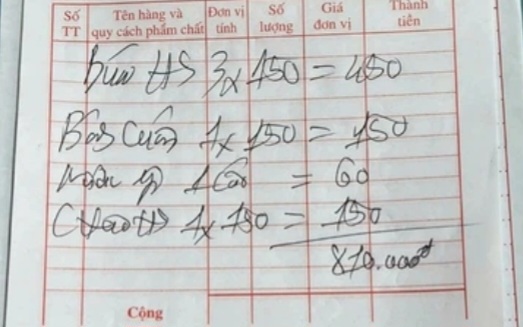 Số TT Tên hàng và quy cách phẩm chất Đơn vị tính Số lượng Giá đơn vị Thành tiền
Bún HS 3x150 = 450
Bánh Cuốn 1x150 = 150
1 = 60
Cháo HS 1x150 = 150
810.000đ
Cộng